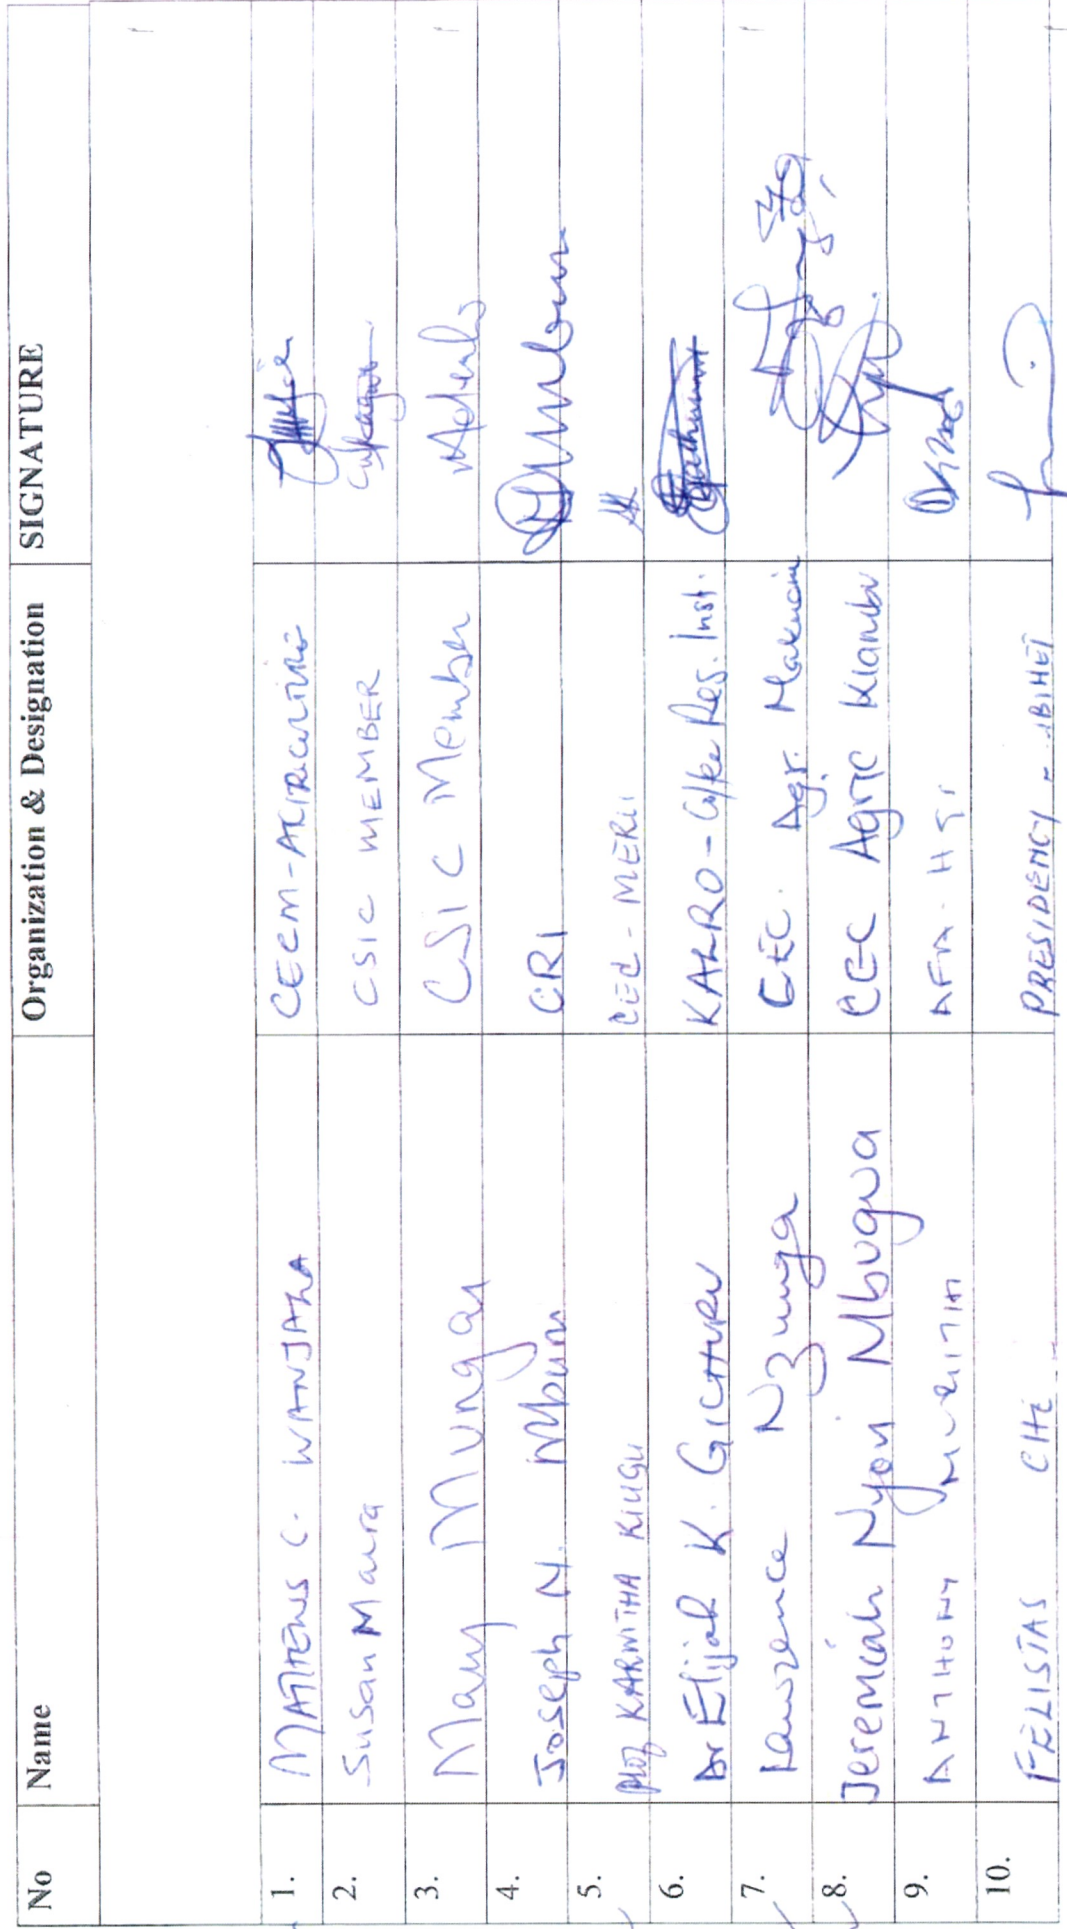 No Name Organization & Designation SIGNATURE
1. MATHEWS C. WANJALA CECM-AGRICULTURE
2. Susan Maura CSIC MEMBER
3. Mary Mungai CSIC Member
4. Joseph N. Mburu CRI
5. KARWITHA KIUGU CEC - MERU
6. Dr Elijah K. GICHURU KALRO - Coffee Res. Inst.
7. Lawrence Nzunga CEC. Agr. Makueni
8. Jeremiah Nyori Mbugwa CEC Agric Kiambu
9. ANTHONY MURIITHI AFA -
10. FELISTAS PRESIDENCY -